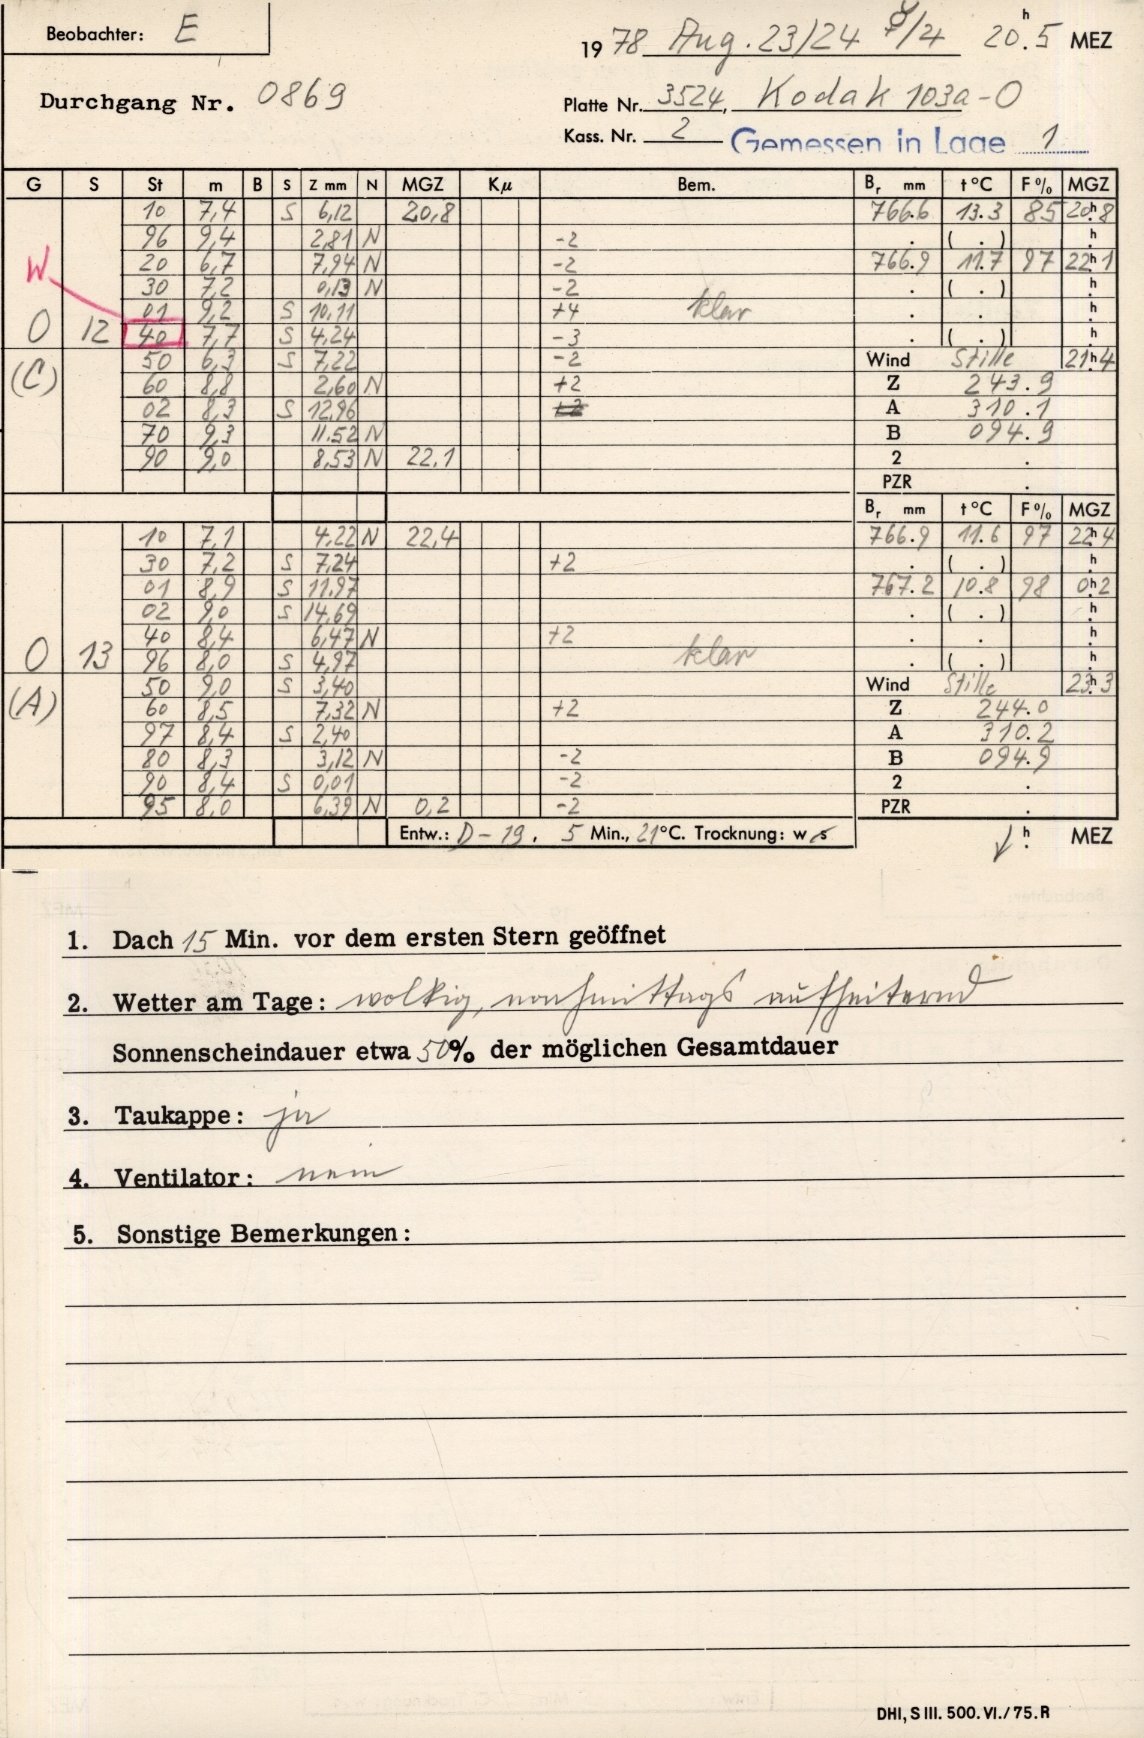 Beobachter: E
1978 Aug. 23/24 ☿/4 20h.5 MEZ
Durchgang Nr. 0869
Platte Nr. 3524, Kodak 103a-O
Kass. Nr. 2 Gemessen in Lage 1
G S St m B S Z mm N MGZ Kμ Bem. Br mm t°C F% MGZ
10 7,4 S 6,12 20,8 766.6 13.3 85 20h8
96 9,4 2,81 N -2 . ( . ) h.
W 20 6,7 7,94 N -2 766.9 11.7 97 22h1
30 7,2 0,13 N -2 . ( . ) h.
01 9,2 S 10,11 +4 klar . . h.
O 12 40 7,7 S 4,24 -3 . ( . ) h.
50 6,3 S 7,22 -2 Wind Stille 21h4
(C) 60 8,8 2,60 N +2 Z 243.9
02 8,3 S 12,96 +2 A 310.1
70 9,3 11.52 N B 094.9
90 9,0 8,53 N 22,1 2 .
PZR .
Br mm t°C F% MGZ
10 7,1 4,22 N 22,4 766.9 11.6 97 22h4
30 7,2 S 7,24 +2 . ( . ) h.
01 8,9 S 11,97 767.2 10.8 98 0h2
02 9,0 S 14,69 . ( . ) h.
40 8,4 6,47 N +2 . . h.
O 13 96 8,0 S 4,97 klar . ( . ) h.
50 9,0 S 3,40 Wind Stille 23h3
(A) 60 8,5 7,32 N +2 Z 244.0
97 8,4 S 2,40 A 310.2
80 8,3 3,12 N -2 B 094.9
90 8,4 S 0,01 -2 2 .
95 8,0 6,39 N 0,2 -2 PZR .
Entw.: D-19. 5 Min., 21°C. Trocknung: w s h. MEZ
1. Dach 15 Min. vor dem ersten Stern geöffnet
2. Wetter am Tage: wolkig, nachmittags aufheiternd
Sonnenscheindauer etwa 50% der möglichen Gesamtdauer
3. Taukappe: ja
4. Ventilator: nein
5. Sonstige Bemerkungen:
DHI, S III. 500. VI./75. R